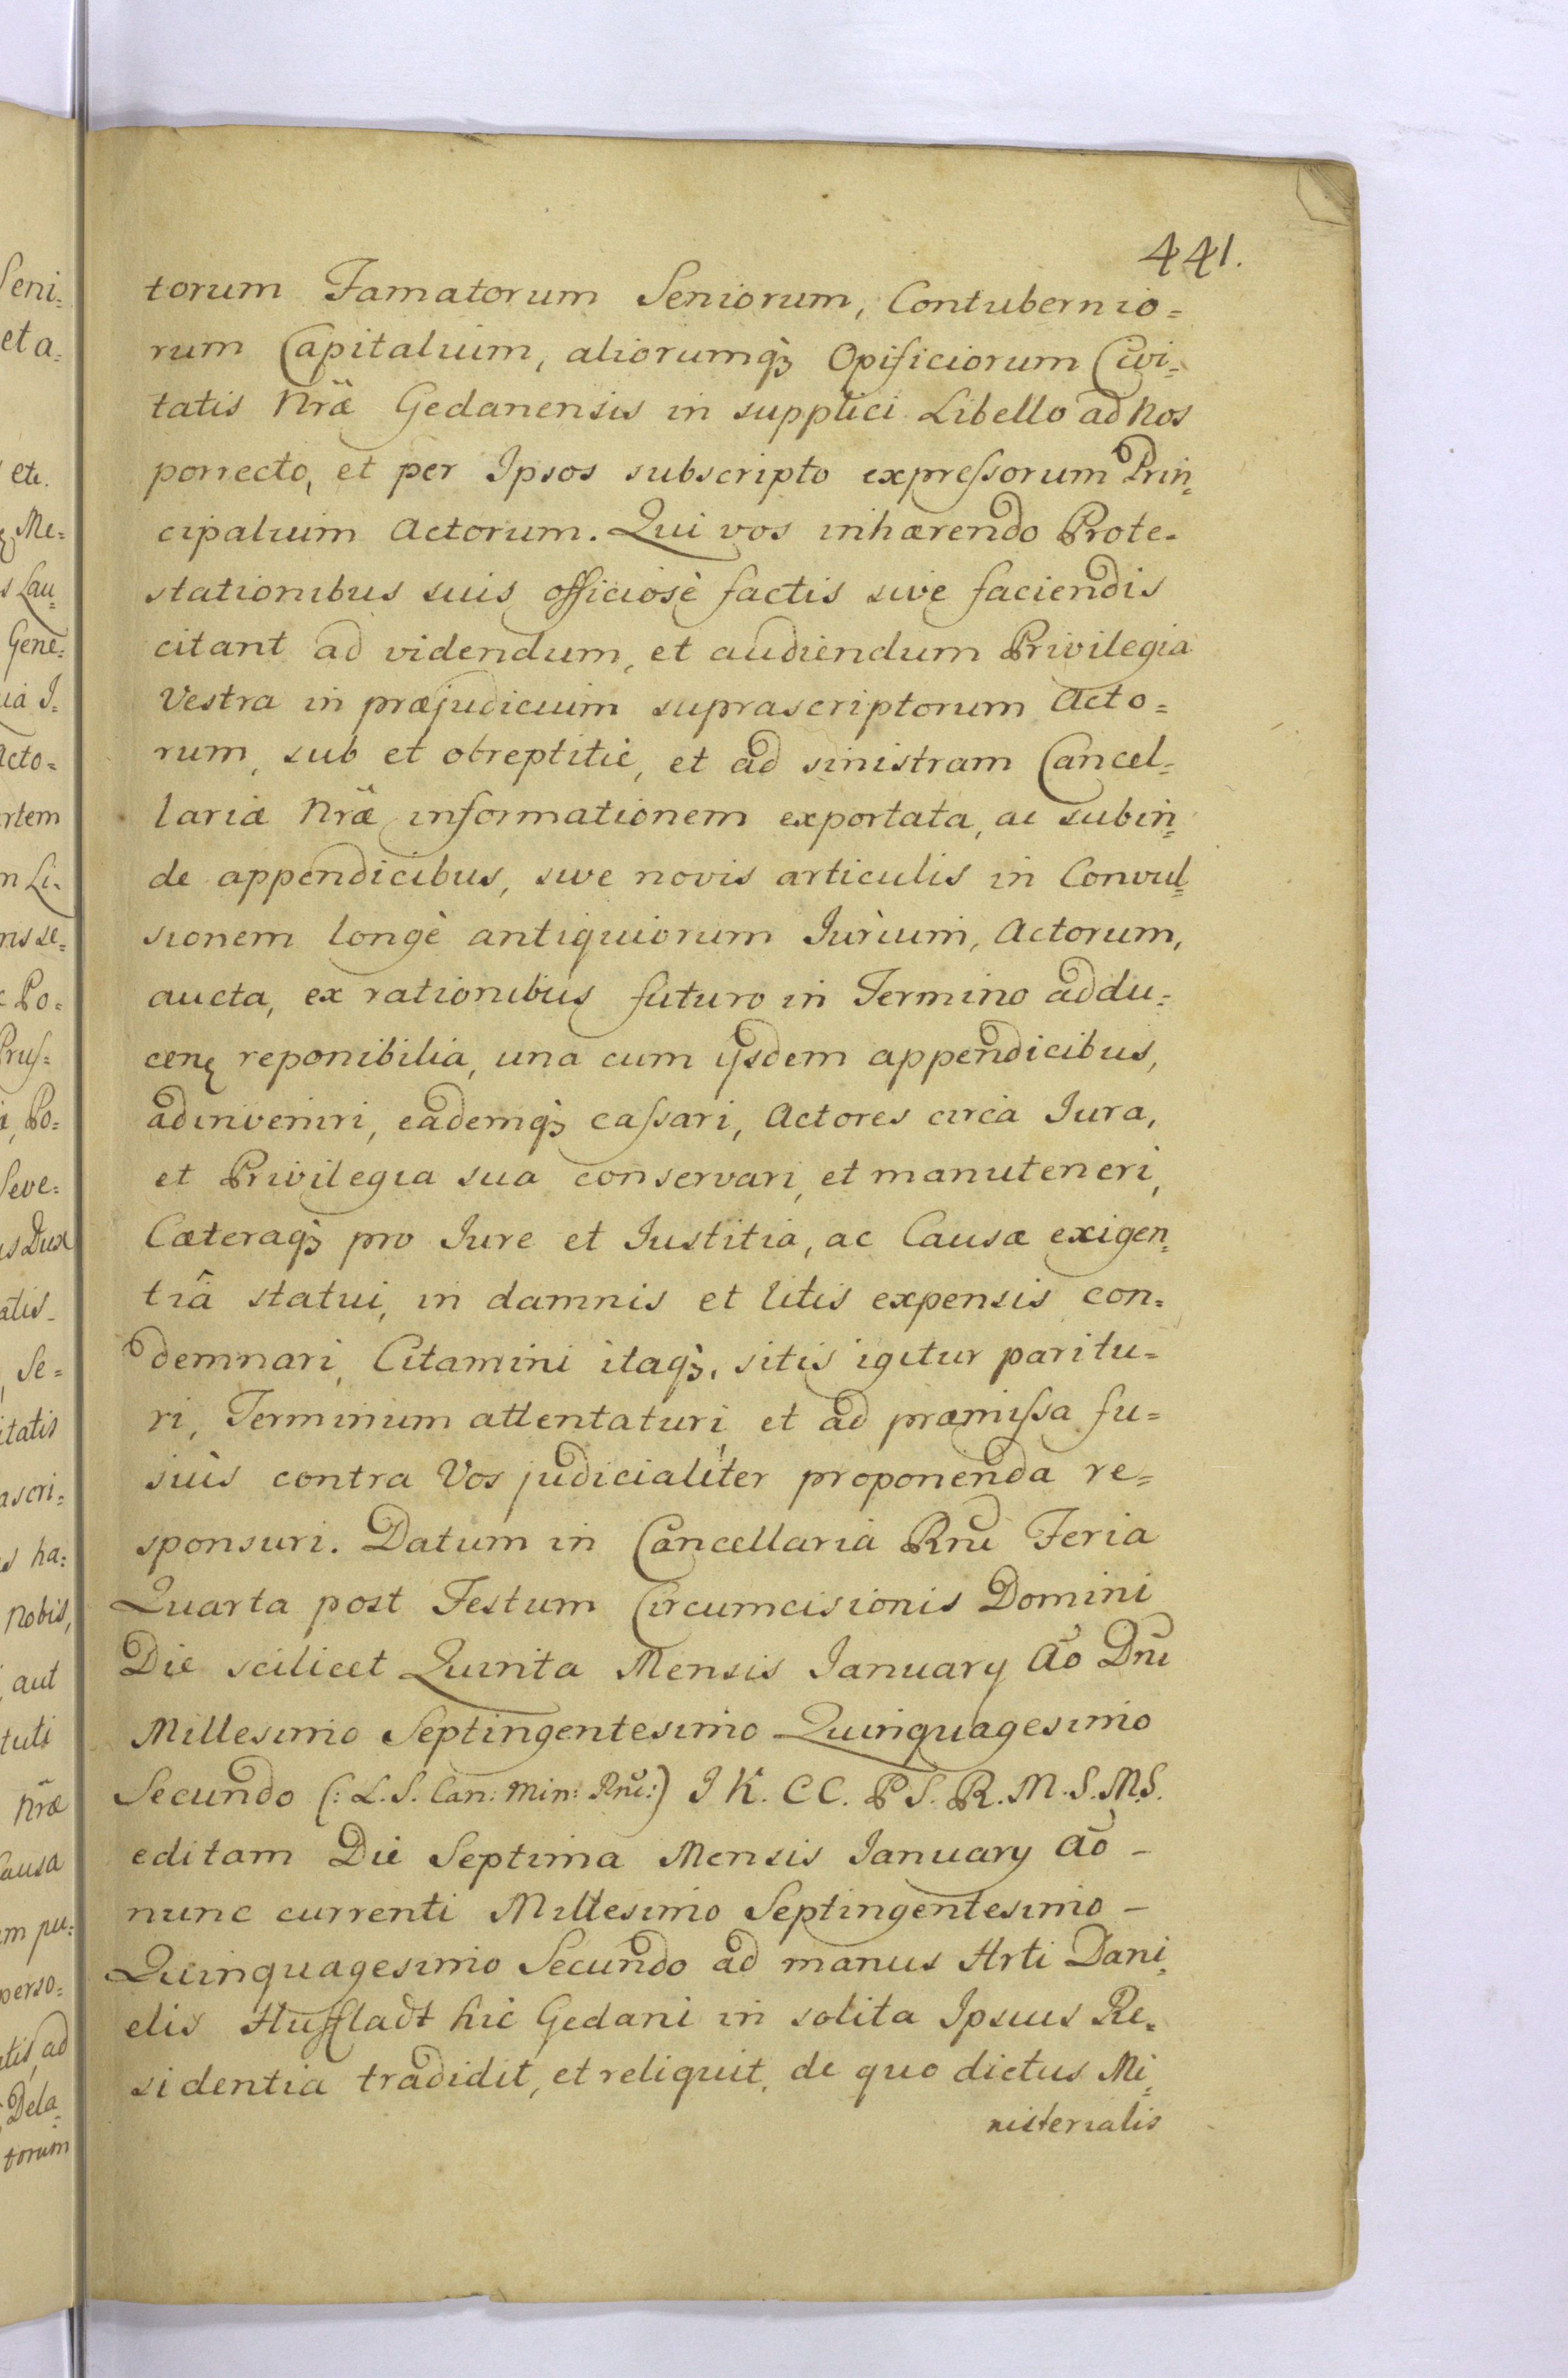 441.
torum Famatorum Seniorum, Contubernio=
rum Capitalium, aliorumq́ꝫ Opificiorum Civi=
tatis Nr̃æ Gedanensis in supplici Libello ad Nos
porrecto, et per Ipsos subscripto expreſsorum Prin=
cipalium Actorum. Qui vos inhærendo Prote=
stationibus suis officiosè factis sive faciendis
citant ad videndum, et audiendum Privilegia
Vestra in præjudicium suprascriptorum Acto=
rum, sub et obreptitiè, et ad sinistram Cancel=
lariæ Nr̃æ informationem exportata, ac subin=
de appendicibus, sive novis articulis in Convul=
sionem longè antiquiorum Jurium, Actorum,
aucta, ex rationibus futuro in Termino addu=
cenꝫ reponibilia, una cum ijsdem appendicibus,
adinveniri, eademq́ꝫ caſsari, Actores circa Jura,
et Privilegia sua conservari, et manuteneri,
Cæteraq́ꝫ pro Jure et Justitia, ac Causæ exigen=
tiâ statui, in damnis et litis expensis con=
demnari, Citamini itaq́ꝫ, sitis igitur paritu=
ri, Terminum attentaturi, et ad præmiſsa fu=
siùs contra Vos judicialiter proponenda re=
sponsuri. Datum in Cancellaria Rñi Feria
Quarta post Festum Circumcisionis Domini
Die scilicet Quinta Mensis January Aõ Dñi
Millesimo Septingentesimo Quinquagesimo
Secundo (: L. S. Can: Min: Rñi:) J K. C C. P S. R. M. S. M S.
editam Die Septima Mensis January Aõ –
nunc currenti Millesimo Septingentesimo –
Quinquagesimo Secundo ad manus Hrti Dani=
elis Huffladt hic Gedani in solita Ipsius Re=
sidentia tradidit, et reliquit, de quo dictus Mi=
nisterialis